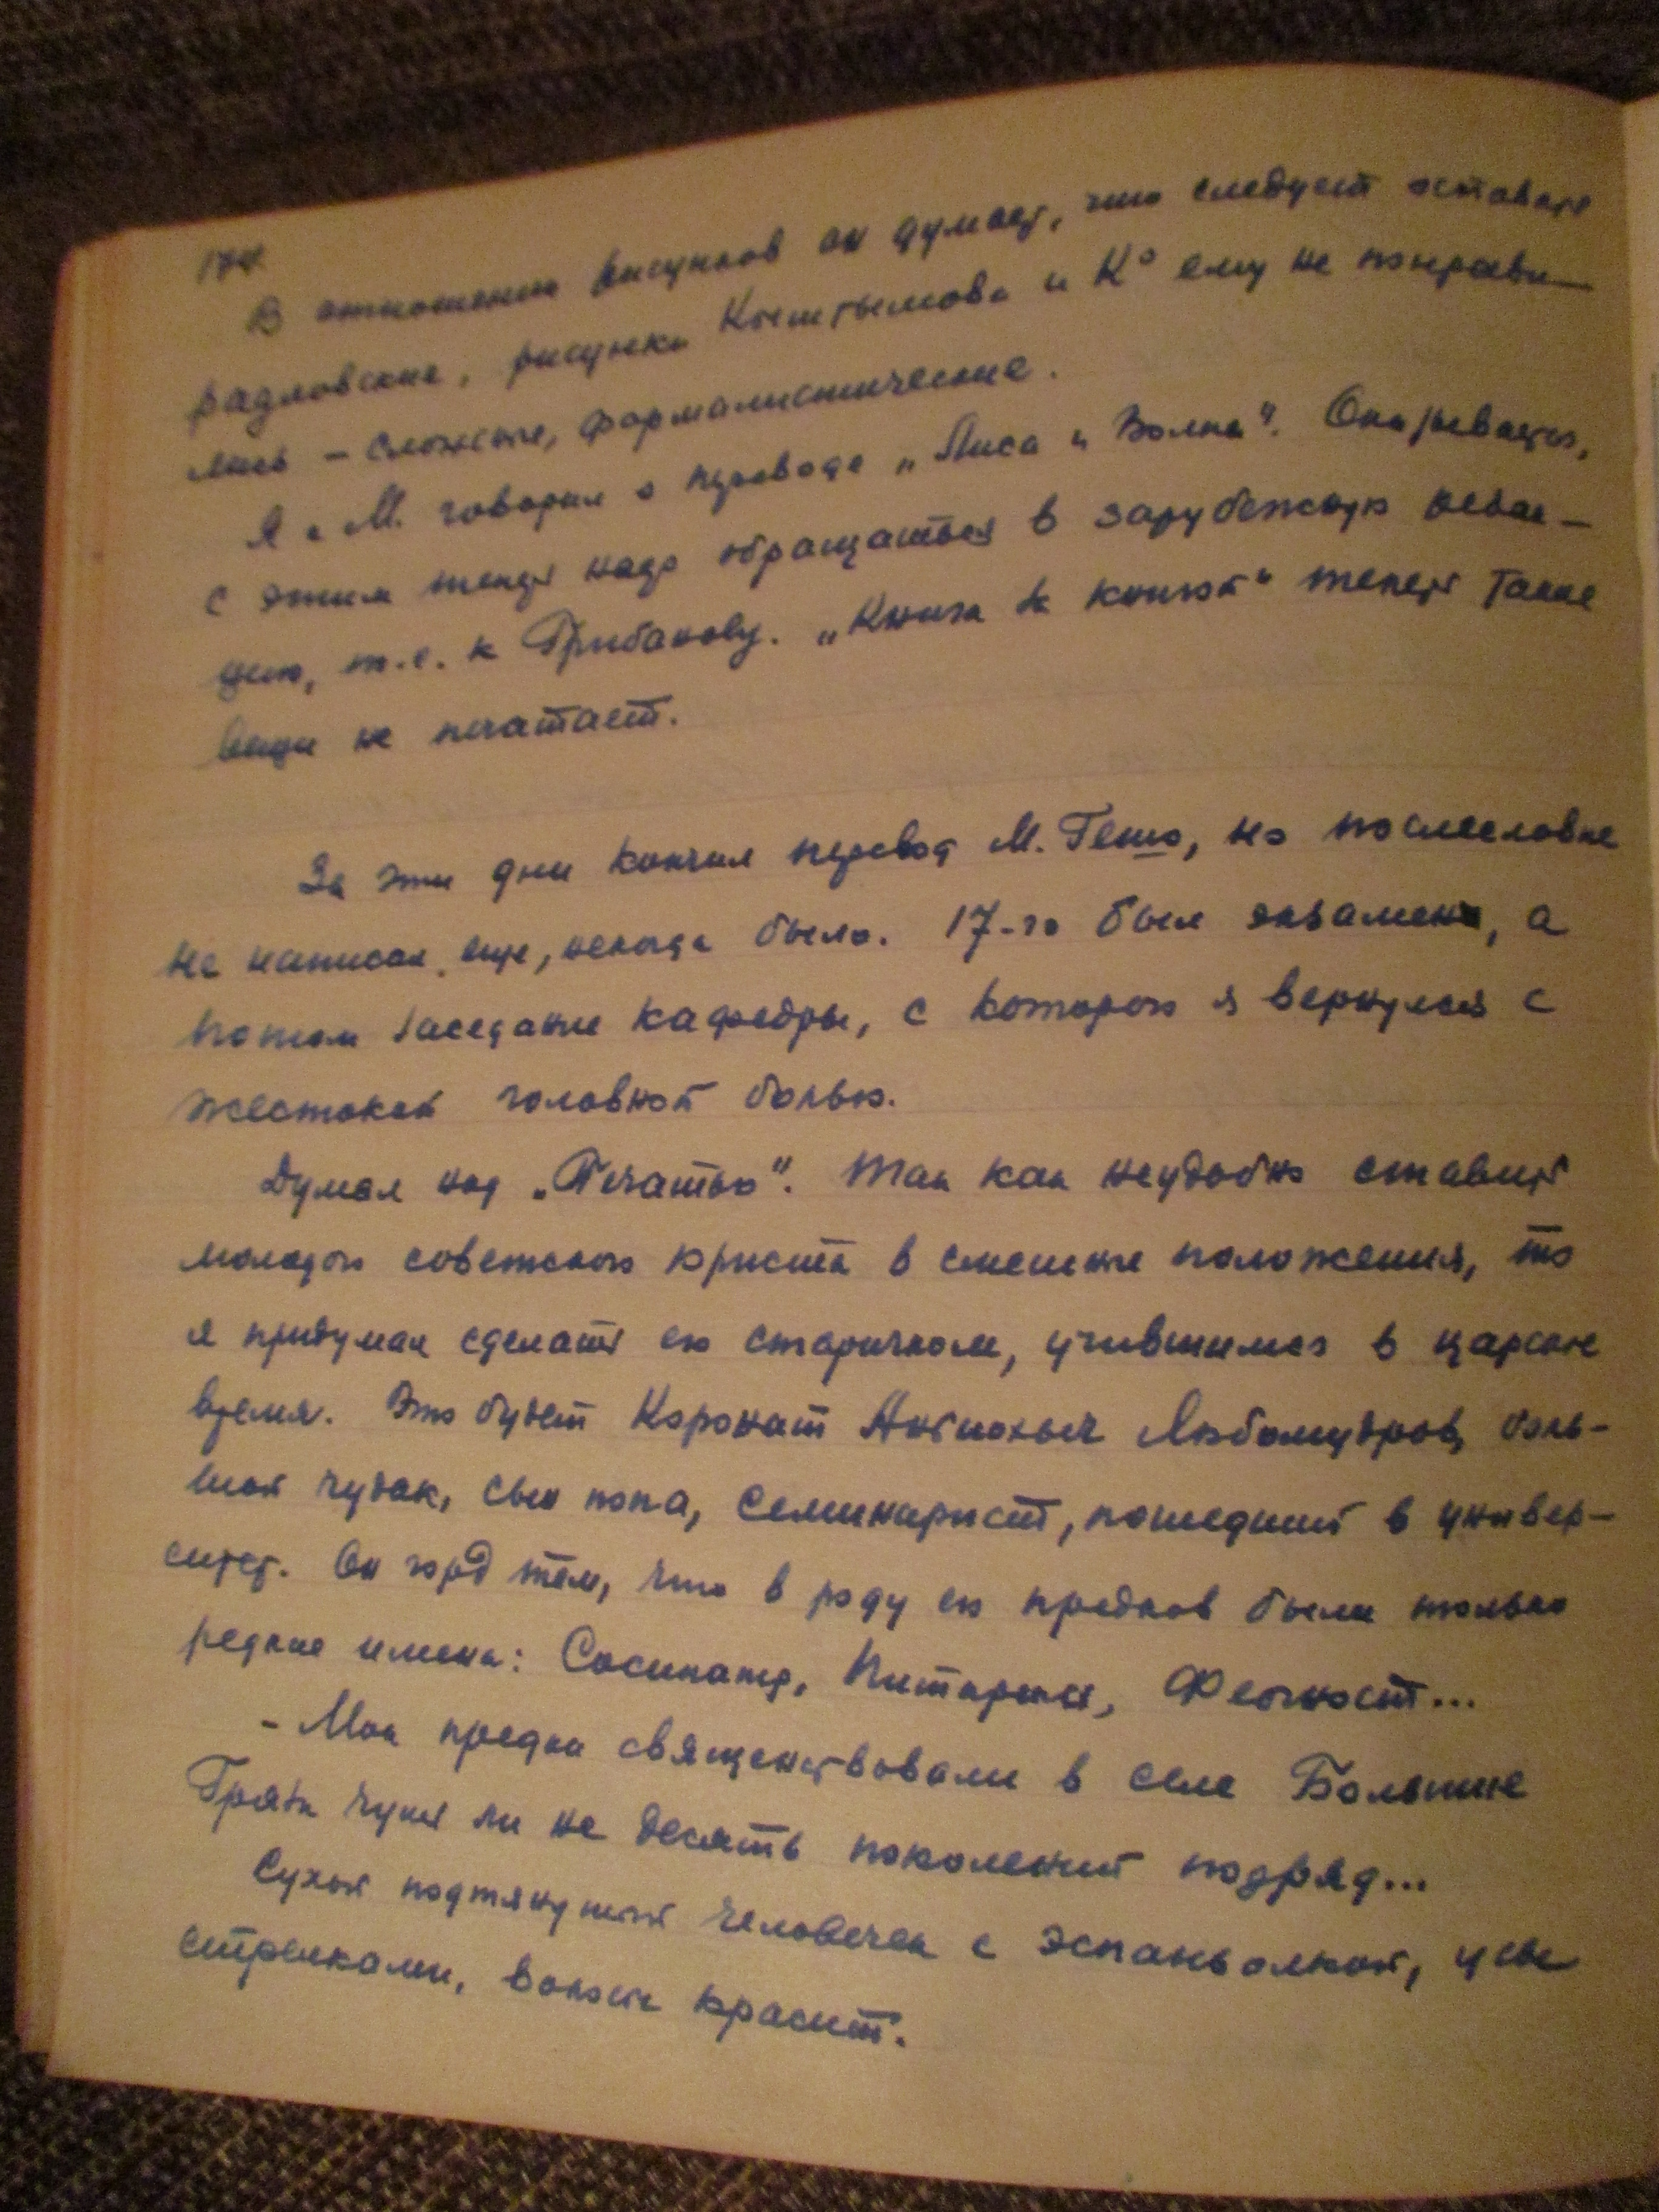 В отношении рисунков он думает, что следует оставить
радловские, рисунки Кыштымова и К° ему не понрави-
лись – сложные, формалистические.
Я с М. говорил о переводе „Лиса и Волка“. Оказывается,
с этим теперь надо обращаться в зарубежную редак-
цию, т.е. к Грибанову. „Книга за книгой“ теперь такие
вещи не печатает.
За эти дни кончил перевод М. Гешо, но послесловие
не написал еще, некогда было. 17-го был экзамен, а
потом заседание кафедры, с которого я вернулся с
жестокой головной болью.
Думал над „Печатью“. Так как неудобно ставить
молодого советского юриста в смешные положения, то
я придумал сделать его старичком, учившимся в царское
время. Это будет Коронат Антиохыч Любомудров, боль-
шой чудак, сын попа, семинарист, пошедший в универ-
ситет. Он горд тем, что в роду его предков были только
редкие имена: Сосипатр, Питирим, Феогност...
– Мои предки священствовали в селе Большие
Грязи чуть ли не десять поколений подряд...
Сухой подтянутый человечек с эспаньолкой, усы
стрелками, волосы красит.